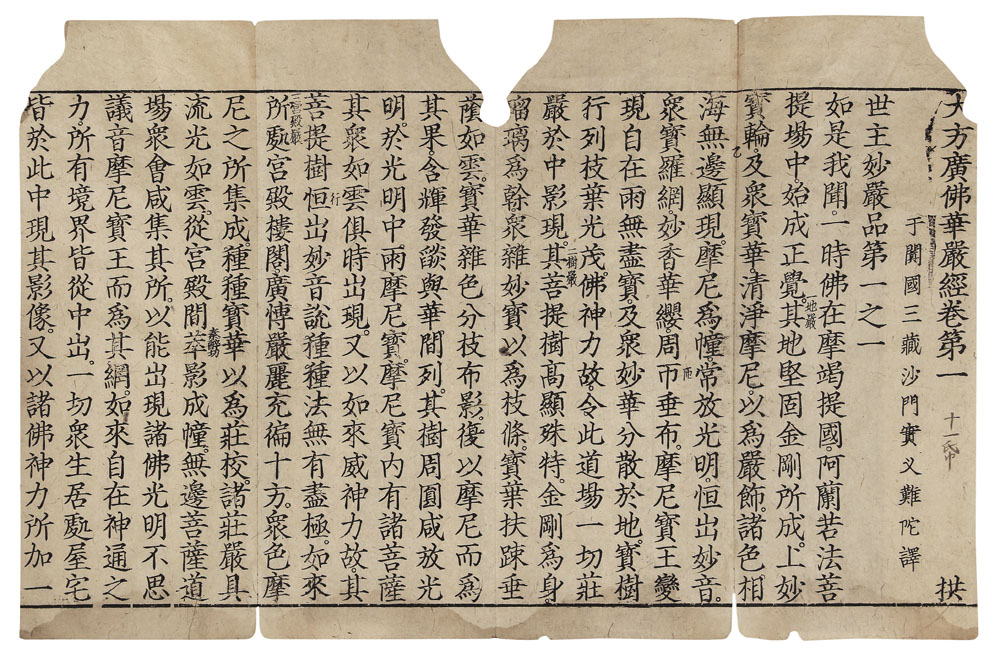 大方廣佛華嚴經卷第一 十一紙 拱
于闐國三藏沙門實叉難陀譯
世主妙嚴品第一之一
如是我聞。一時佛在摩竭提國。阿蘭若法菩
提場中始成正覺。其地堅固金剛所成。上妙
地嚴
寶輪。及衆寶華。清淨摩尼。以爲嚴飾。諸色相
海無邊顯現。摩尼爲幢。常放光明。恒出妙音。
衆寶羅網。妙香華纓。周帀垂布。摩尼寶王變
現自在雨無盡寶。及衆妙華分散於地。寶樹
行列枝葉光茂。佛神力故。令此道場一切莊
嚴於中影現。其菩提樹高顯殊特。金剛爲身。
二樹嚴
瑠璃爲榦。衆雜妙寶以爲枝條。寶葉扶踈垂
蔭如雲。寶華雜色分枝布影。復以摩尼而爲
其果。含輝發燄與華間列。其樹周圓咸放光
明。於光明中。雨摩尼寶。摩尼寶內有諸菩薩
其衆如雲俱時出現。又以如來威神力故。其
菩提樹恒出妙音說種種法無有盡極。如來
所處宮殿樓閣。廣慱嚴麗充徧十方。衆色摩
三宮殿嚴
尼之所集成。種種寶華以爲莊校。諸莊嚴具
流光如雲。從宮殿間萃影成幢。無邊菩薩道
場衆會咸集其所。以能出現諸佛光明不思
議音摩尼寶王而爲其網。如來自在神通之
力。所有境界皆從中出。一切衆生居處屋宅
皆於此中現其影像。又以諸佛神力所加一